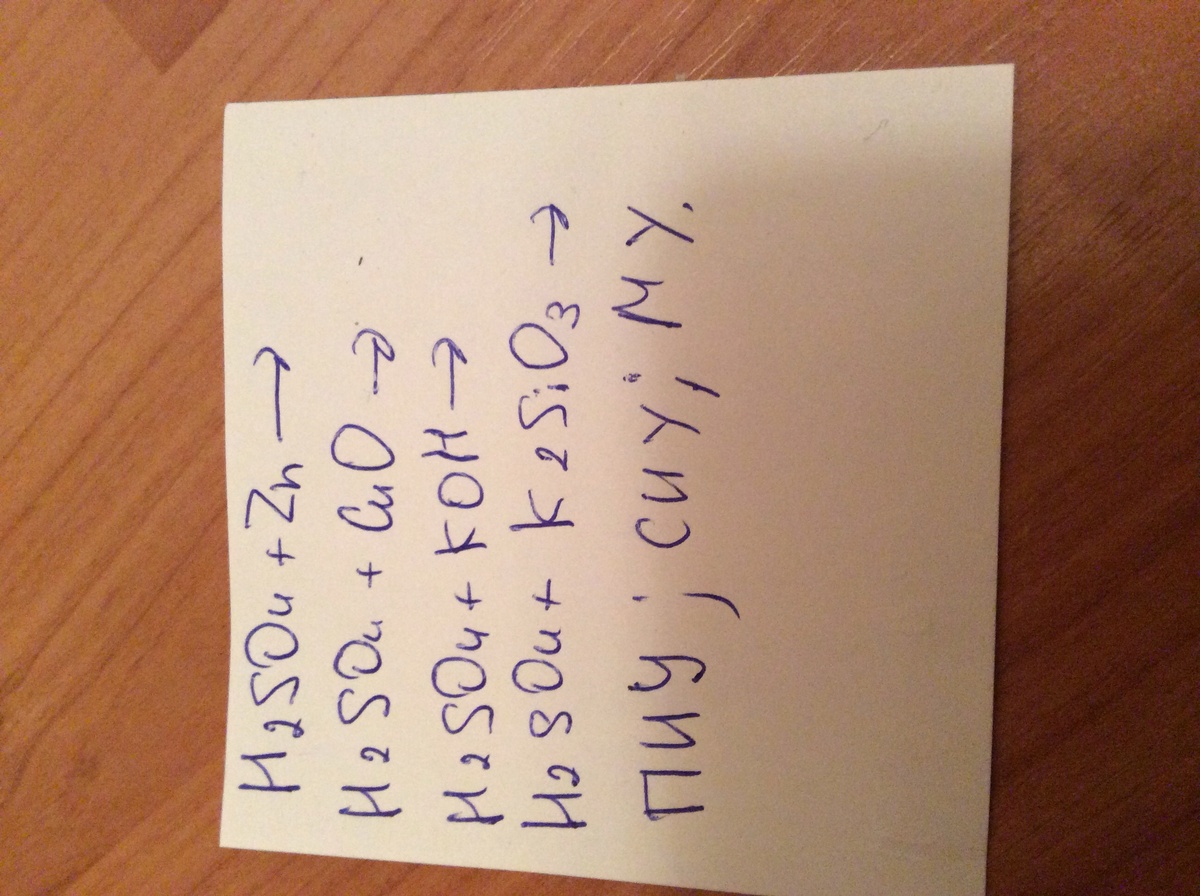 H₂SO₄ + Zn →
H₂SO₄ + CuO →
H₂SO₄ + KOH →
H₂SO₄ + K₂SiO₃ →
ПИУ; СИУ; МУ.